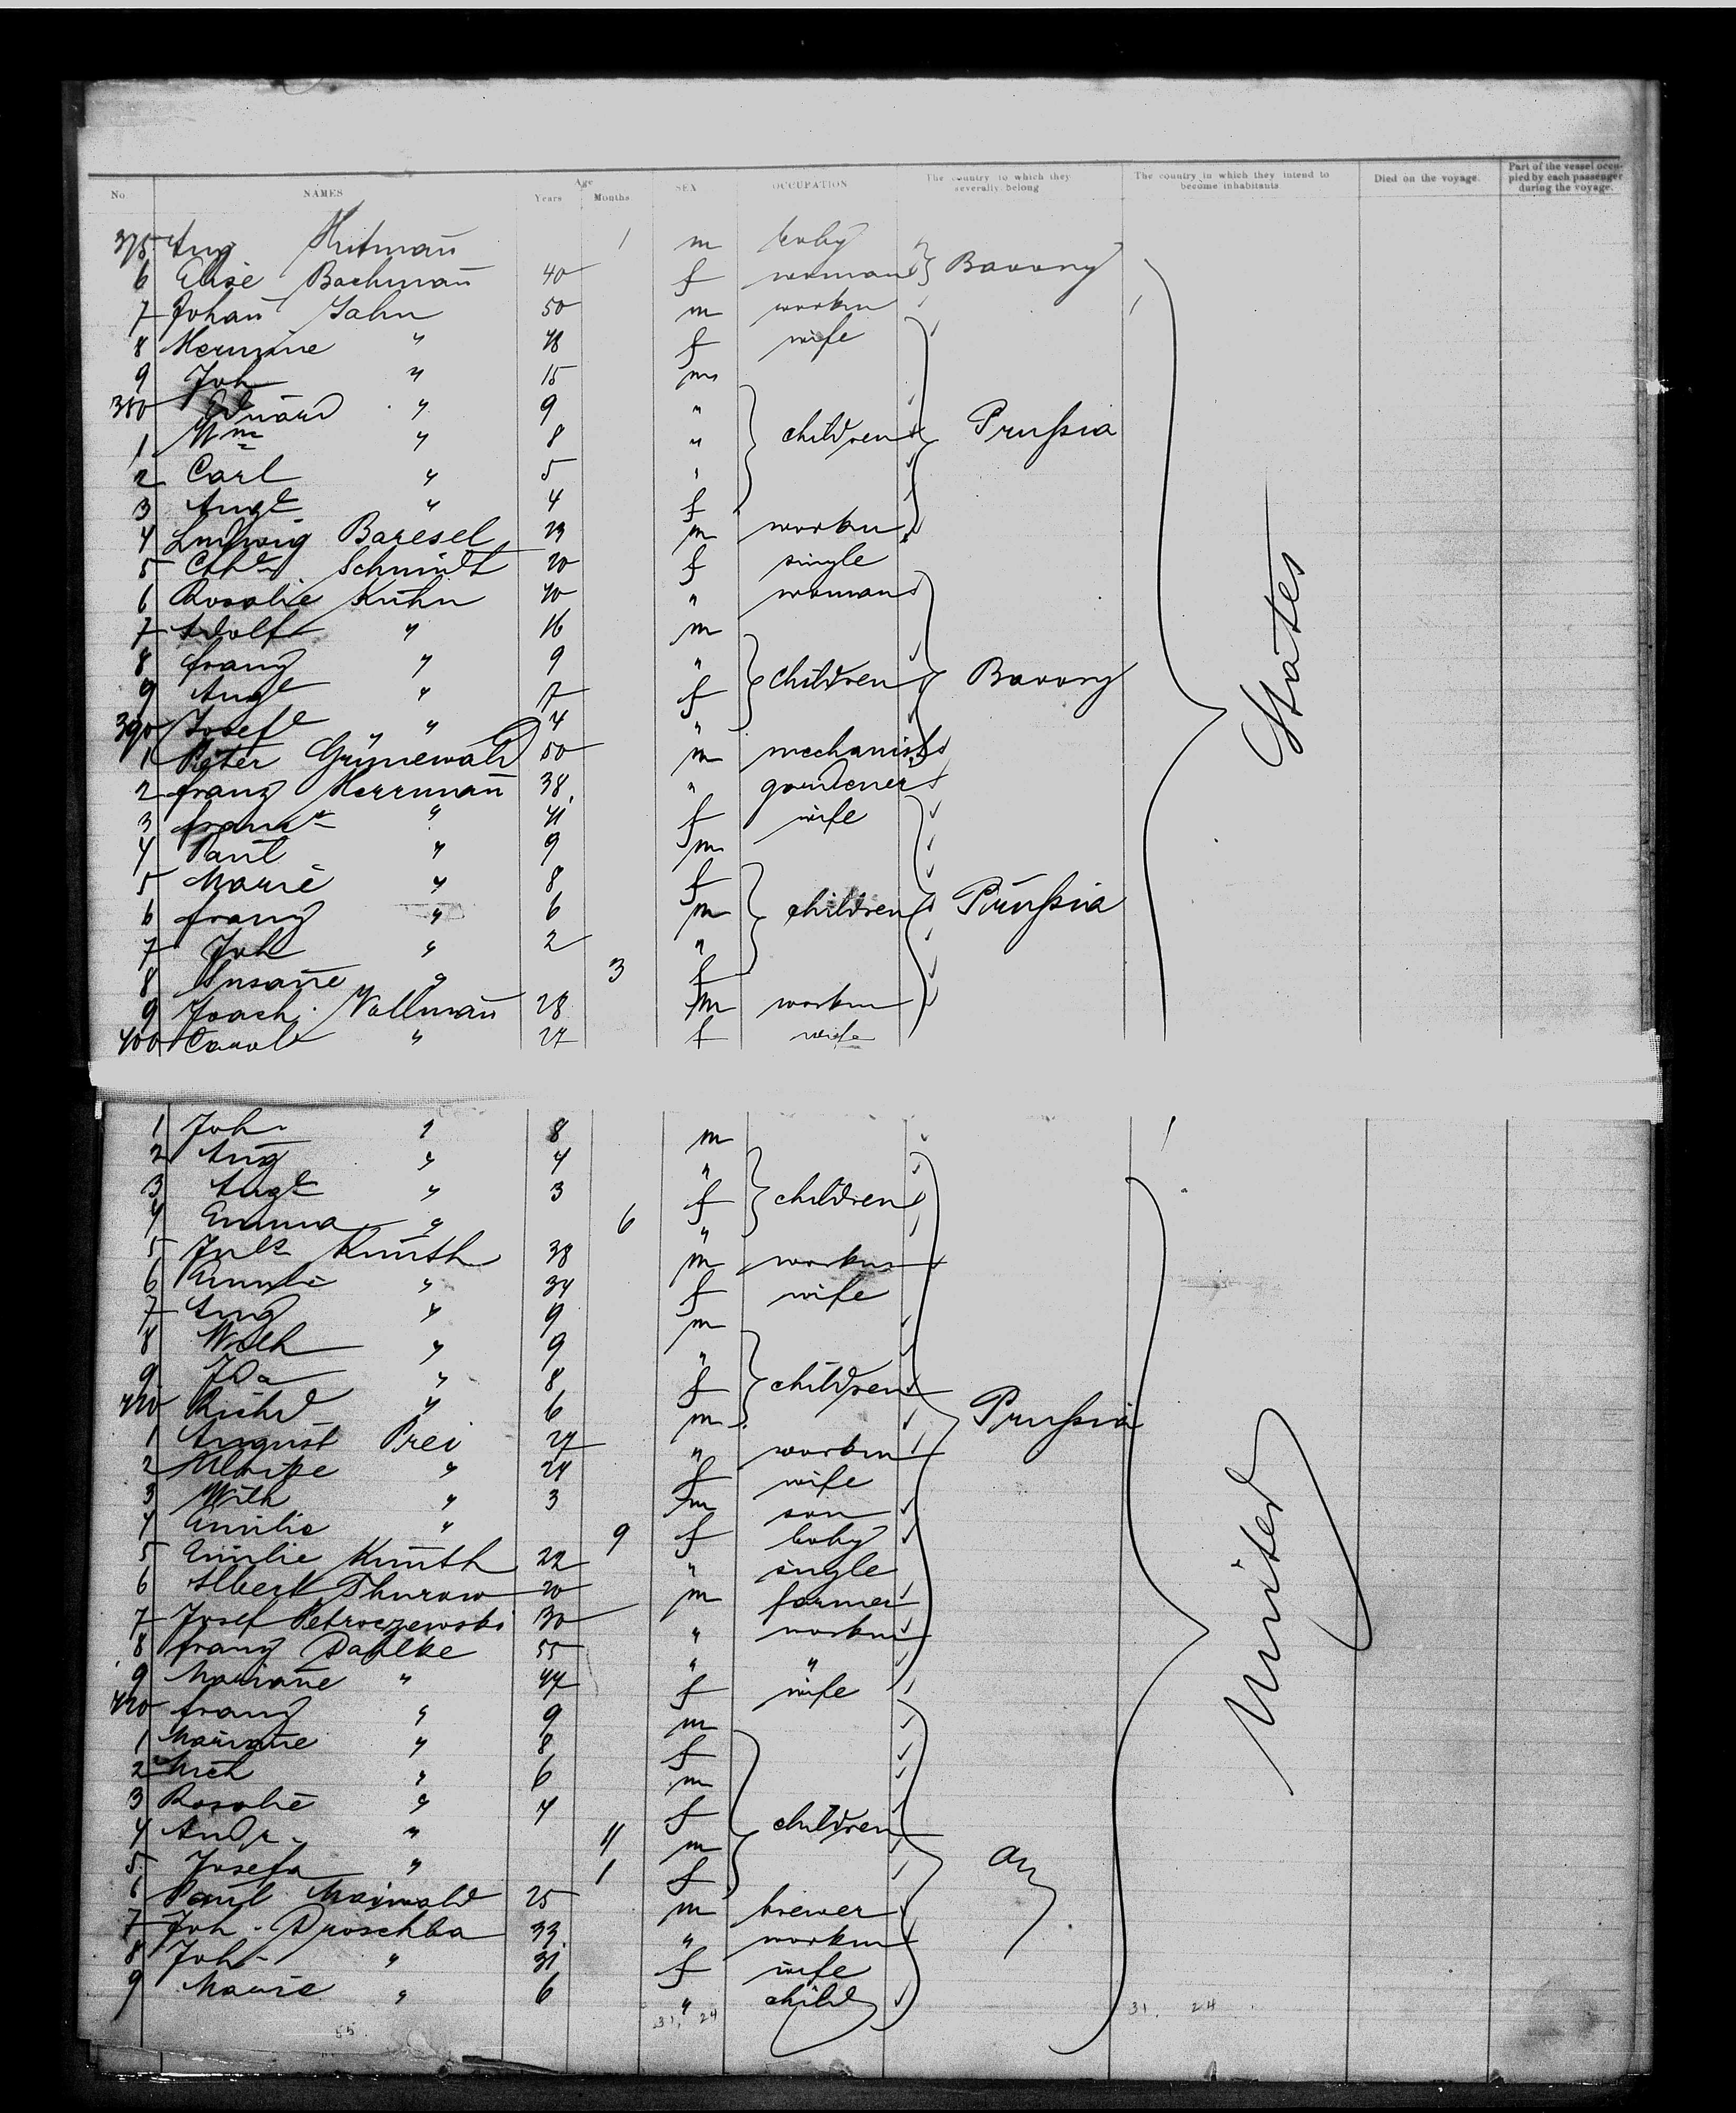 No. NAMES Age Years Months SEX OCCUPATION The country to which they severally belong The country in which they intend to become inhabitants Died on the voyage. Part of the vessel occupied by each passenger during the voyage.
375 Aug 1 m baby
6 Elise Bachmañ 40 f woman Bavary
7 Johañ Jahn 50 m workm
8 Hermine " 48 f wife
9 Joh " 15 m
380 Eduard " 9 "
1 Wm " 8 " children Prußia
2 Carl " 5 "
3 Augte " 4 f
4 Ludwig Baresel 23 m workm
5 Schmidt 20 f single
6 Rosalie Kuhn 40 " woman
7 Adolf " 16 m
8 franz " 9 " children Bavary
9 Augte " 7 f
390 Josefe " 4 "
1 Peter Grünewald 50 m mechanist
2 franz Herrmañ 38 " gardener
3 " 41 f wife
4 Paul " 9 m
5 Marie " 8 f
6 franz " 6 m children Prußia
7 Joh " 2 "
8 Susañe " 3 f
9 Joach. Vollmañ 28 m workm
400 Carol " 27 f wife
States
1 Joh. " 8 m
2 Aug " 4 "
3 Augte " 3 f children
4 Emma " 6 "
5 Juls Kunth 38 m workm
6 " 34 f wife
7 Aug " 9 m
8 Wilh " 9 "
9 Ida " 8 f children
410 Richd " 6 m Prußia
1 August Prei 27 " workm
2 Ulrike " 24 f wife
3 Wilh " 3 m son
4 Emilie " 9 f baby
5 Emilie Kunth 22 " single
6 Albert Thurow 20 m farmer
7 Josef Petroczewski 30 " workm
8 franz Dahlke 55 " "
9 Mariañe " 44 f wife
420 franz " 9 m
1 Mariañe " 8 f
2 Mich " 6 m
3 Rosalie " 4 f
4 Andr. " 11 m children
5 Josefa " 1 f
6 Paul Maiwald 25 m brewer
7 Joh. Droschba 33 " workm
8 Joh. " 31 f wife
9 Marie " 6 " child
United
55 31. 24 31. 24